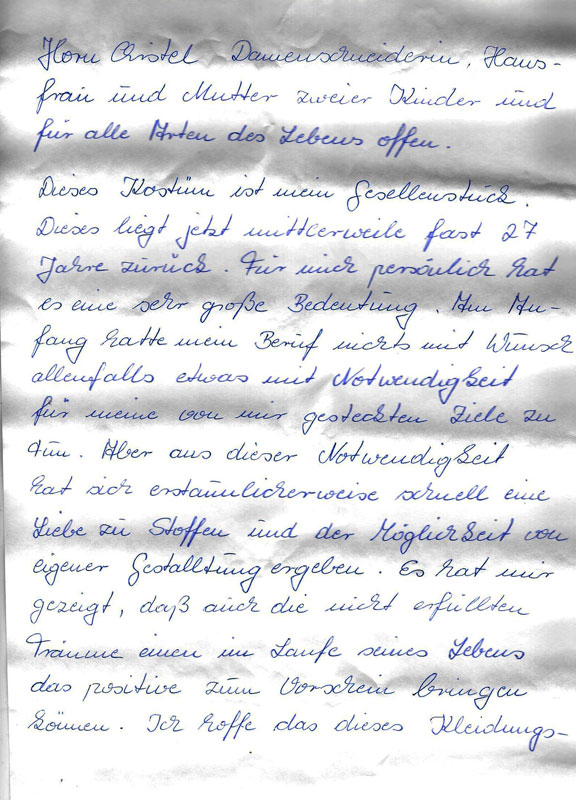 Horn Christel Damenschneiderin, Haus-
frau und Mutter zweier Kinder und
für alle Arten des Lebens offen.
Dieses Kostüm ist mein Gesellenstück.
Dieses liegt jetzt mittlerweile fast 27
Jahre zurück. Für mich persönlich hat
es eine sehr große Bedeutung. Am An-
fang hatte mein Beruf nichts mit Wunsch
allenfalls etwas mit Notwendigkeit
für meine von mir gesteckten Ziele zu
tun. Aber aus dieser Notwendigkeit
hat sich erstaunlicherweise schnell eine
Liebe zu Stoffen und der Möglichkeit von
eigener Gestalltung ergeben. Es hat mir
gezeigt, daß auch die nicht erfüllten
Träume einen im Laufe seines Lebens
das positive zum Vorschein bringen
können. Ich hoffe das dieses Kleidungs-